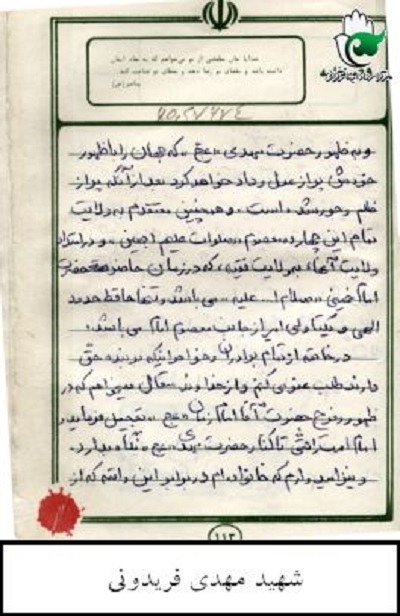 خدایا جان مطمئنی از تو می‌خواهم که به لقاء ایمان
داشته باشد و بقضای تو رضا دهد و بعطای تو قناعت کند.
پیامبر (ص)
و به ظهور حضرت مهدی «عج» که جهان را با ظهور
خودش پر از عدل و داد خواهد کرد بعد از آنکه پر از
ظلم و جور شده است. و همچنین معتقدم به ولایت
تمام این چهارده معصوم «صلوات علیهم اجمعین» و در امتداد
ولایت آنها، به ولایت فقیه، که در زمان حاضر حضرت
امام خمینی «سلام ا... علیه» می باشد و تنها حافظ حدود
الهی و یکتا ولی امر از جانب معصوم امام می باشد.
در خاتمه از تمام برادران و خواهرانیکه بر بنده حق
دارند طلب عفو می کنم و از خداوند متعال میخواهم که در
ظهور و فرج حضرت آقا امام زمان «عج» تعجیل فرماید و
امام امت را حتی تا کنار حضرت مهدی «عج» نگاه بدارد.
و نیز امیدوارم که خانواده ام در برابر این که از
۱۱۳
شهید مهدی فریدونی